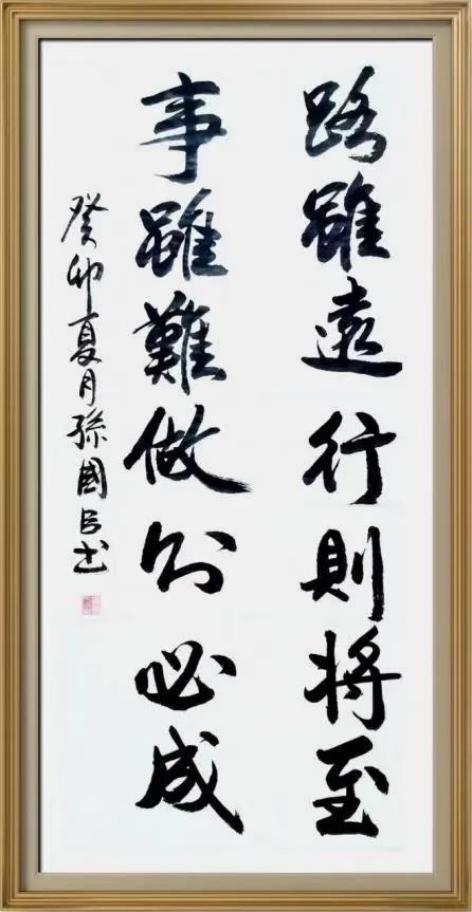 路雖遠行則將至
事雖難做則必成
癸卯夏月孫國呂書